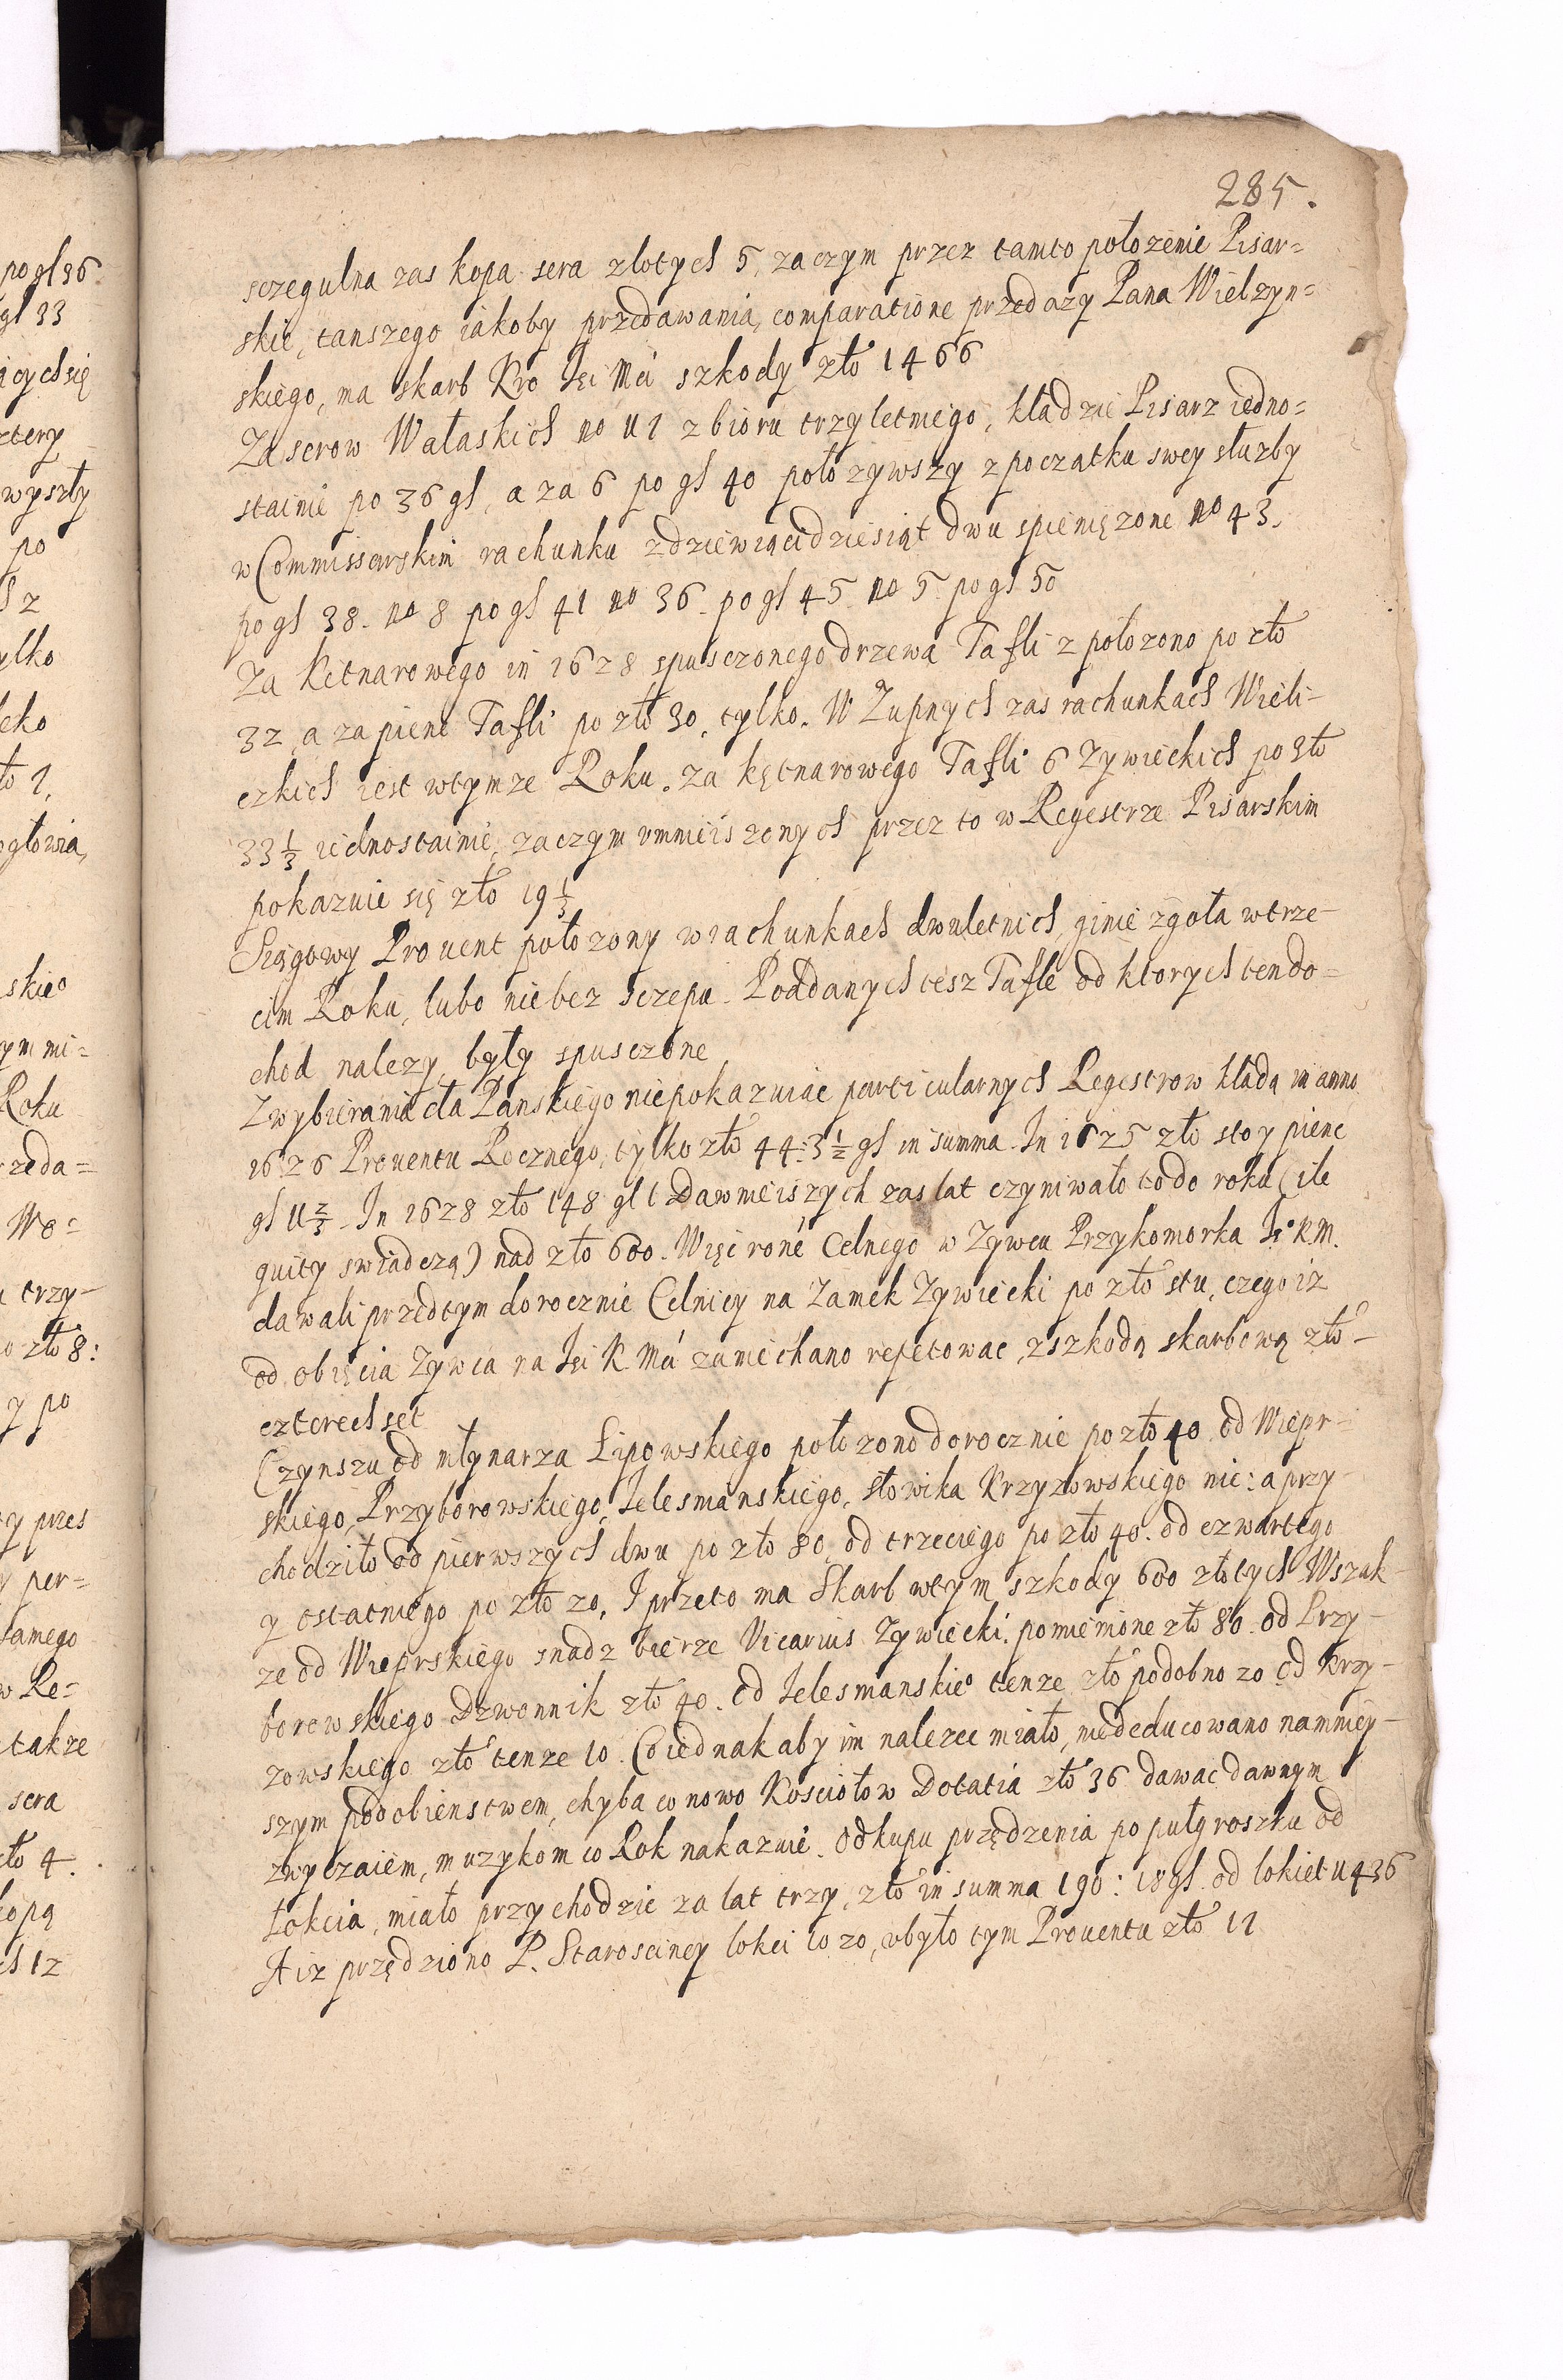 285.
sczegulna zas kopa sera zlotych 5, zaczym przez tamto położenie Pisar=
skie, tanszego iakoby przedawania, comparatione przedazy Pana Wielzyn=
skiego, ma skarb Kro Jei Mci szkody zło 1466
Za serow Wałaskich no 111 zbioru trzyletniego, kładzie Pisarz iedno=
stainie po 36 gl, a za 6 po gl 40 położywszy z początku swey służby
w Commissarskim rachunku z dziewiącidziesiąt dwu spieniężone no 43.
po gl 38. no 8 po gl 41 no 36. po gl 45. no 5. po gl 50
Za Ketnarowego in 1628 spusczonego drzewa Tafli 2 położono po zło
32, a za pienc Tafli po zło 30, tylko. W Zupnych zas rachunkach Wieli-
czkich iest w tymze Roku. za kętnarowego Tafli 6 Zywieckich po zło
33 1/3 iednostainie, zaczym vmnieiszonych przez to w Regestrze Pisarskim
pokazuie się zło 19 1/3
Sięgowy Prouent położony w rachunkach dwuletnich, ginie zgoła w trze-
cim Roku, lubo nie bez sczepu. Poddanych tesz Tafle od ktorych ten do=
chod nalezy, były spusczone
Z wybierania cła Panskiego niepokazuiąc particularnych Regestrow kładą in anno
1626 Prouentu Rocznego, tylko zło 44: 3 1/2 gl in summa. In 1625 zło sto y pienc
gl 11 2/3. In 1628 zło 148 gl 1 Dawnieiszych zas lat czyniwało to do roku (ile
quity swiadczą) nad zło 600. Więc ronć Celnego w Zywcu Przykomorka Je° K M.
dawali przedtym dorocznie Celnicy na Zamek Zywiecki po zło stu, czego iz
od obięcia Zywca na Jei K Mci zaniechano repetowac, z szkodą skarbową zło -
czterech set
Czynszu od młynarza Lipowskiego położono dorocznie po zło 40. od Wiepr-
skiego, Przyborowskiego, Jelesmianskiego, słowika Krzyzowskiego nic: a przy-
chodziło od pierwszych dwu po zło 80, od trzeciego po zło 40. od czwartego
y ostatniego po zło 20, I przeto ma Skarb w tym szkody 600 złotych Wszak-
ze od Wieprskiego snadz bierze Vicarius Zywiecki. pomienione zło 80. od Przy-
borowskiego Dzwonnik zło 40. od Jelesmanskie° tenze zło podobno 20 od Krzy-
zowskiego zło tenze 10. Co iednak aby im nalezec miało, niededucowano namniey-
szym podobienstwem, chyba co nowo Kosciołow Dotatia zło 36 dawac dawnym
zwyczaiem, muzykom co Rok nakazuie. Odkupu przędzenia po pułgroszku od
Łokcia, miało przychodzic za lat trzy, zło in summa 190: 18 gl. od lokiet 11436
A iz przędziono P. Starosciney lokci 1020, vbyło tym Prouentu zło 17